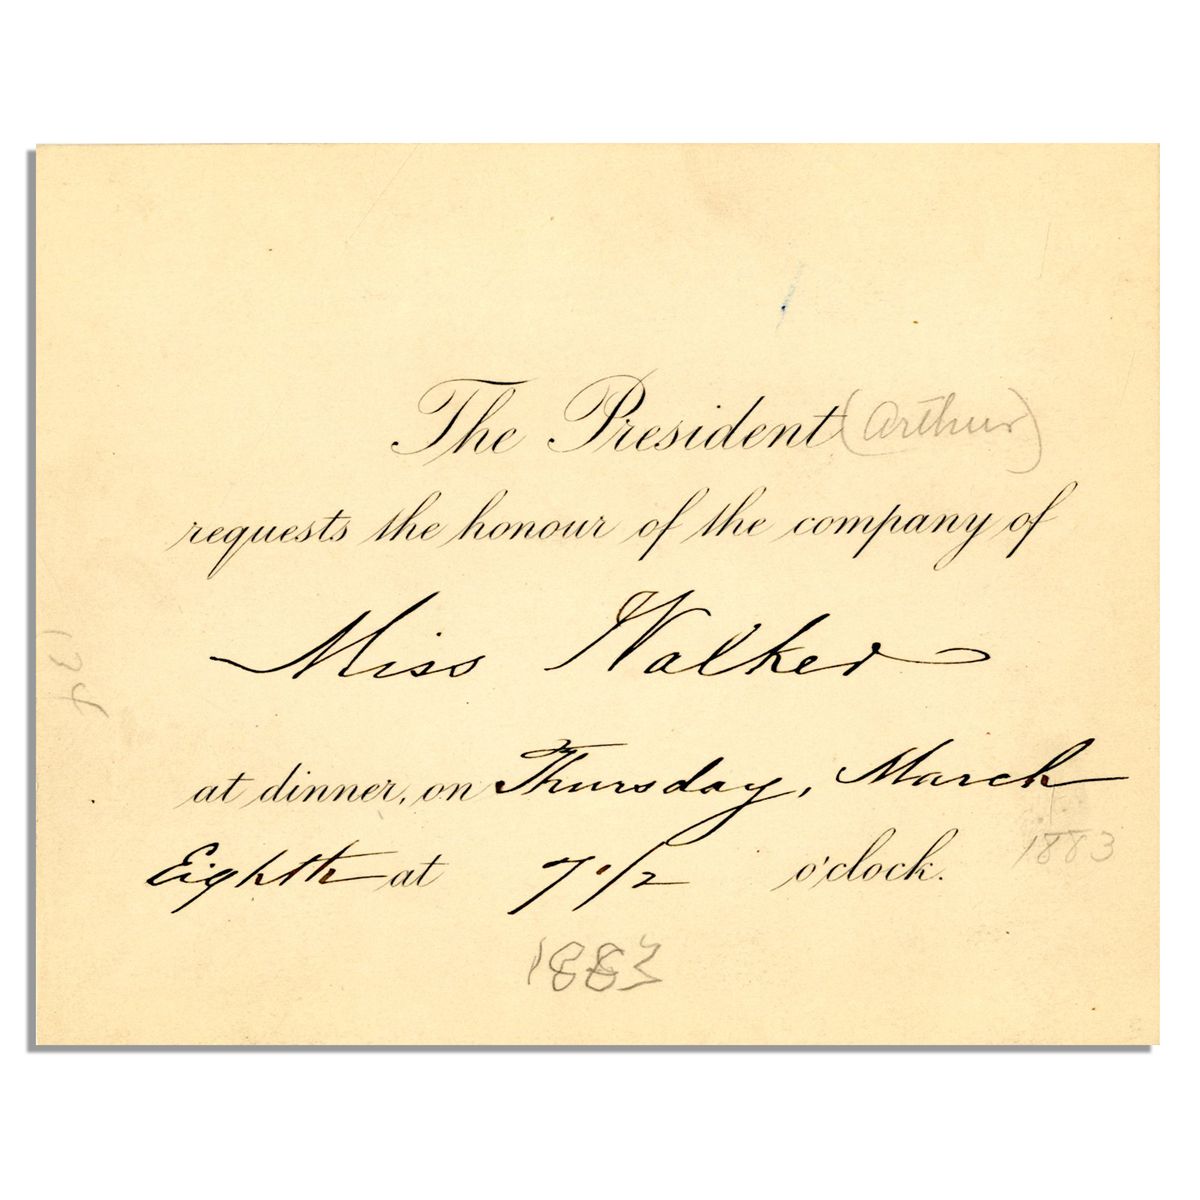 The President (Arthur)
requests the honour of the company of
Miss Walker
at dinner, on Thursday, March
Eighth at 7 1/2 o'clock. 1883
1883